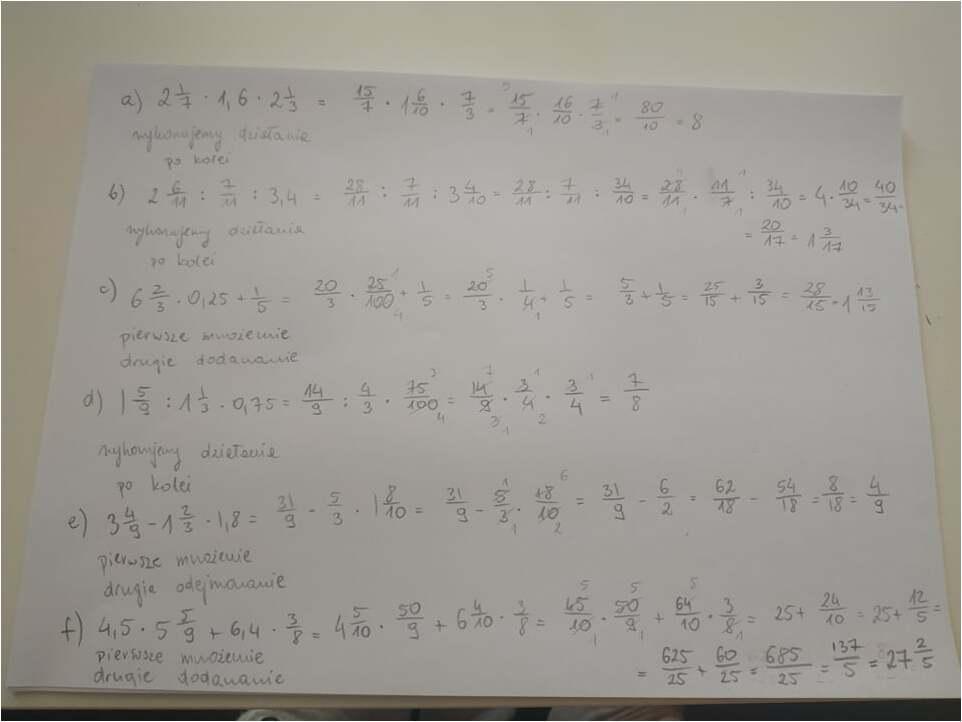 a) 2 1/7 · 1,6 · 2 1/3 = 15/7 · 1 6/10 · 7/3 = 15/7 · 16/10 · 7/3 = 80/10 = 8
wykonujemy działanie
po kolei
b) 2 6/11 : 7/11 : 3,4 = 28/11 : 7/11 : 3 4/10 = 28/11 : 7/11 : 34/10 = 28/11 · 11/7 : 34/10 = 4 · 10/34 = 40/34 =
= 20/17 = 1 3/17
wykonujemy działanie
po kolei
c) 6 2/3 · 0,25 + 1/5 = 20/3 · 25/100 + 1/5 = 20/3 · 1/4 + 1/5 = 5/3 + 1/5 = 25/15 + 3/15 = 28/15 = 1 13/15
pierwsze mnożenie
drugie dodananie
d) 1 5/9 : 1 1/3 · 0,75 = 14/9 : 4/3 · 75/100 = 14/9 · 3/4 · 3/4 = 7/8
wykonujemy działanie
po kolei
e) 3 4/9 - 1 2/3 · 1,8 = 31/9 - 5/3 · 1 8/10 = 31/9 - 5/3 · 18/10 = 31/9 - 6/2 = 62/18 - 54/18 = 8/18 = 4/9
pierwsze mnożenie
drugie odejmowanie
f) 4,5 · 5 5/9 + 6,4 · 3/8 = 4 5/10 · 50/9 + 6 4/10 · 3/8 = 45/10 · 50/9 + 64/10 · 3/8 = 25 + 24/10 = 25 + 12/5 =
= 625/25 + 60/25 = 685/25 = 137/5 = 27 2/5
pierwsze mnożenie
drugie dodananie